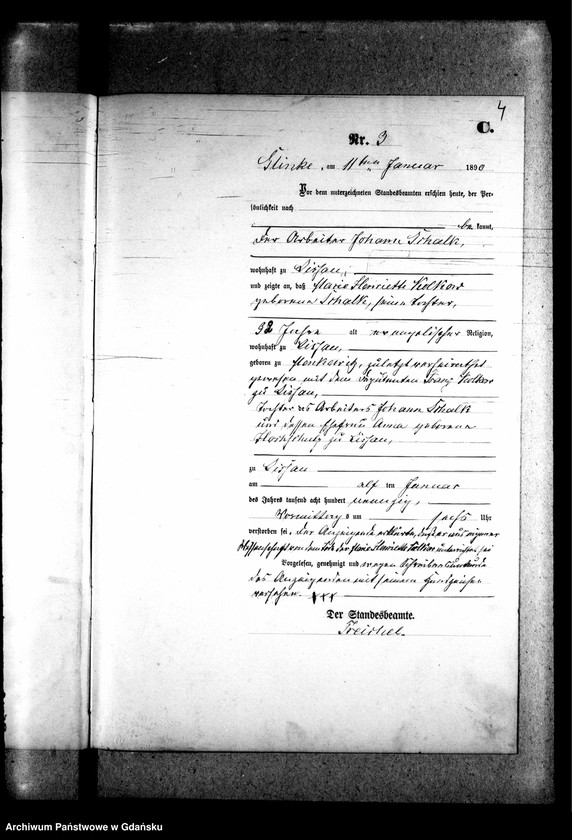 4
C.
Nr. 3
Glinke, am 11ten Januar 1890
Vor dem unterzeichneten Standesbeamten erschien heute, der Per-
sönlichkeit nach
be kannt,
der Arbeiter Johann Schalk,
wohnhaft zu Lissau,
und zeigte an, daß Marie Henriette Kolkow
geborene Schalk, seine Tochter,
32 Jahre alt evangelischer Religion,
wohnhaft zu Lissau,
geboren zu zuletzt verheirathet
gewesen mit dem Franz Kolkow
zu Lissau,
Tochter des Arbeiters Johann Schalk
und dessen Ehefrau Anna geborene
zu Lissau,
zu Lissau
am elf ten Januar
des Jahres tausend acht hundert neunzig,
Vormittags um sechs Uhr
verstorben sei. Der Anzeigende erklärte, daß er aus eigener
Wissenschaft von dem Tode der Marie Henriette Kolkow unterrichtet sei
Vorgelesen, genehmigt und wegen Schreibensunkunde
des Anzeigenden mit seinem Handzeichen
versehen. +++
Der Standesbeamte.
Treichel.
Archiwum Państwowe w Gdańsku